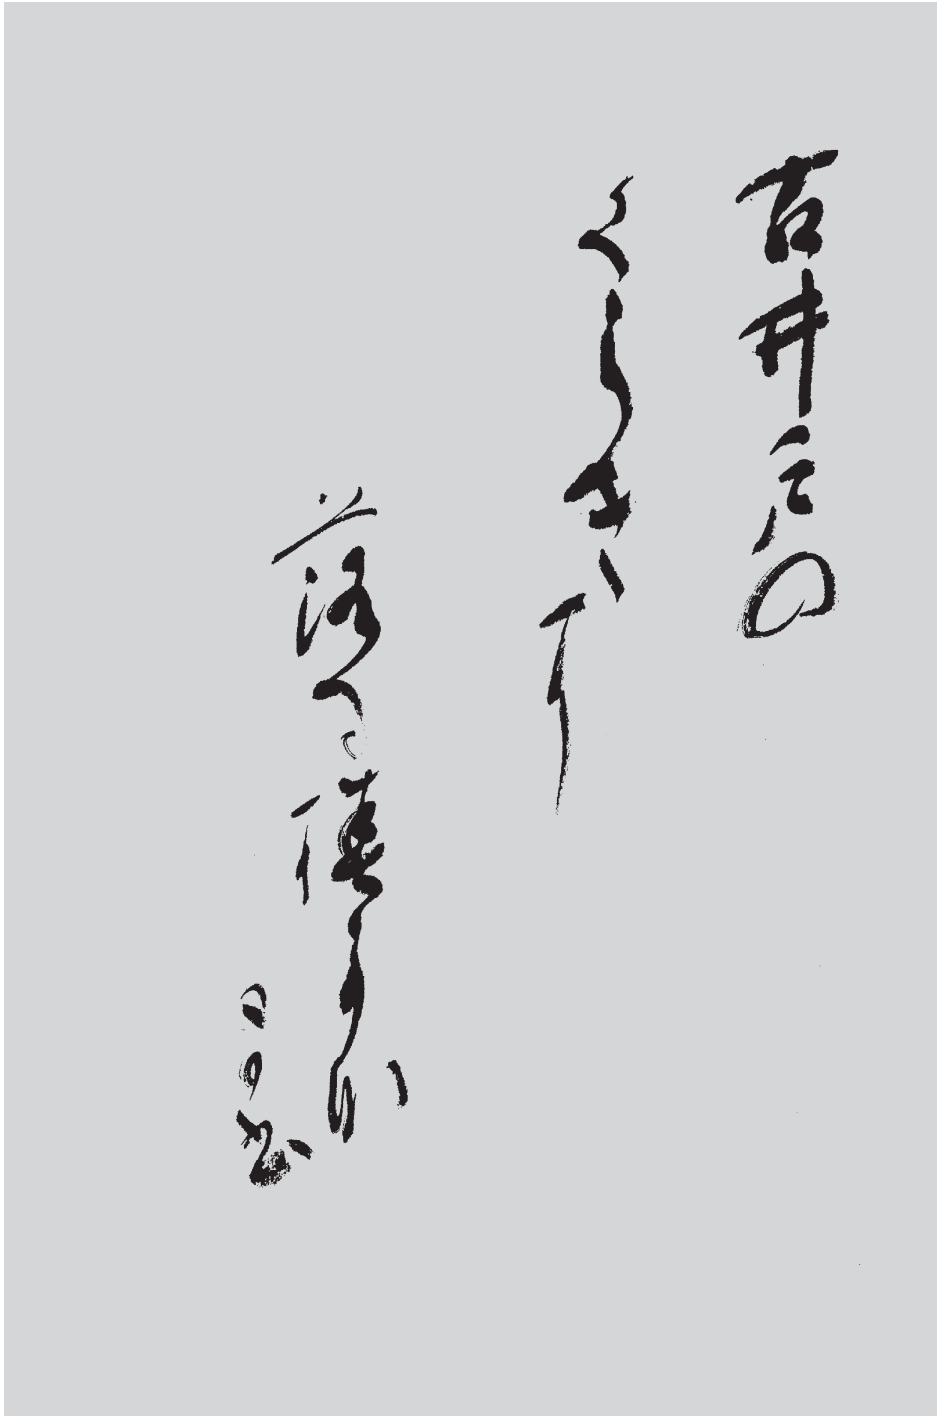 古井戸の
くらきに
落る椿可那